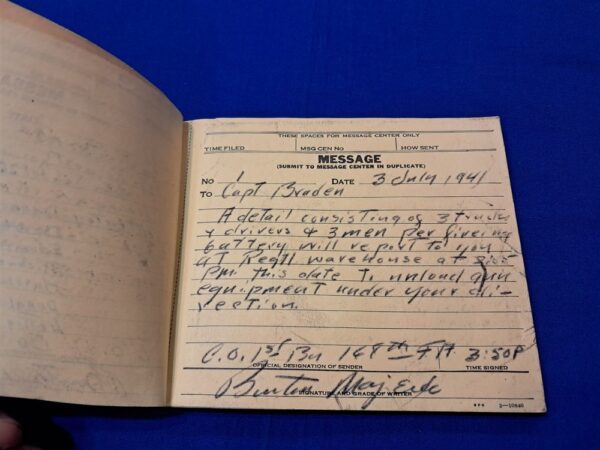 THESE SPACES FOR MESSAGE CENTER ONLY
TIME FILED MSG CEN No HOW SENT
MESSAGE
(SUBMIT TO MESSAGE CENTER IN DUPLICATE)
No 1 DATE 3 July 1941
To Capt Braden
A detail consisting of 3 trucks
& drivers & 3 men per fireing
battery will report to you
at Regtl warehouse at
pm. this date to unload gun
equipment under your di-
rection.
C.O. 1st Bn 168th FA 3:50P
OFFICIAL DESIGNATION OF SENDER TIME SIGNED
Burton Maj
SIGNATURE AND GRADE OF WRITER